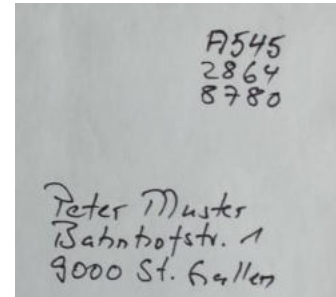 A545
2864
8780
Peter Muster
Bahnhofstr. 1
9000 St. Gallen